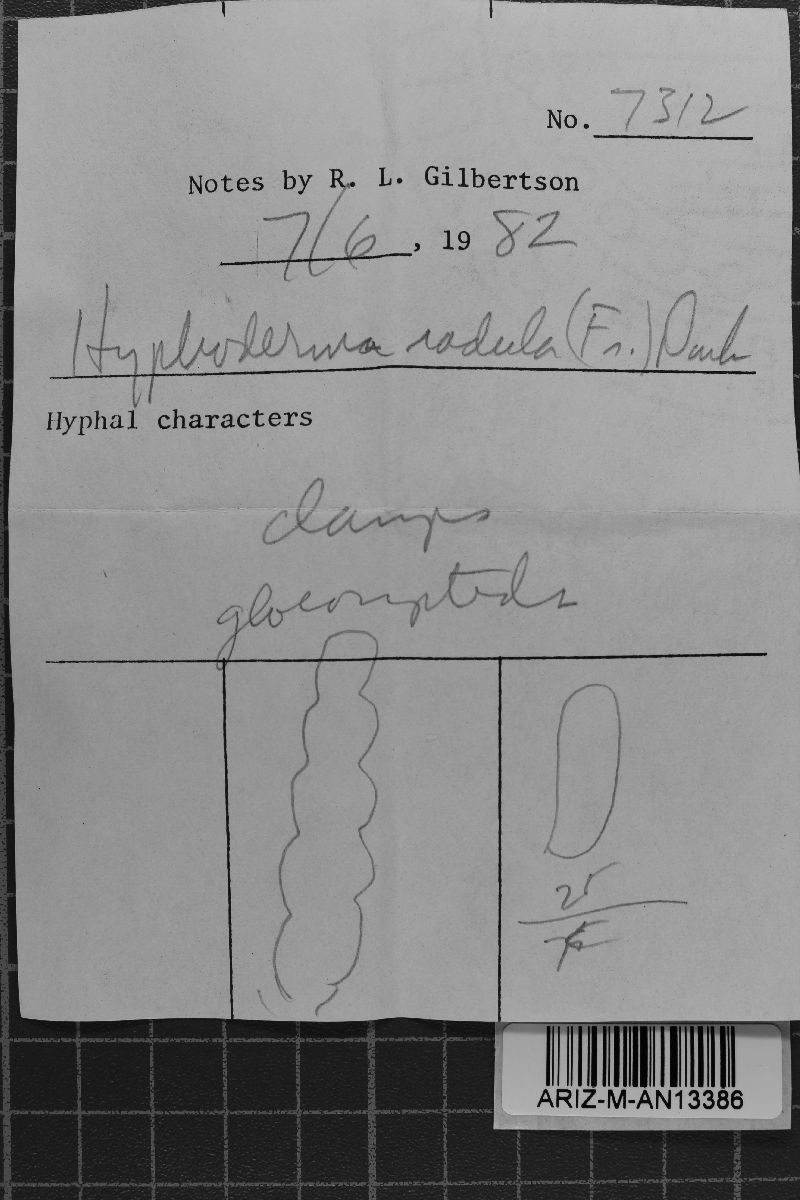 No. 7312
Notes by R. L. Gilbertson
7/6, 19 82
Hyphoderma radula (Fr.) Donk
Hyphal characters
clamps
ARIZ-M-AN13386